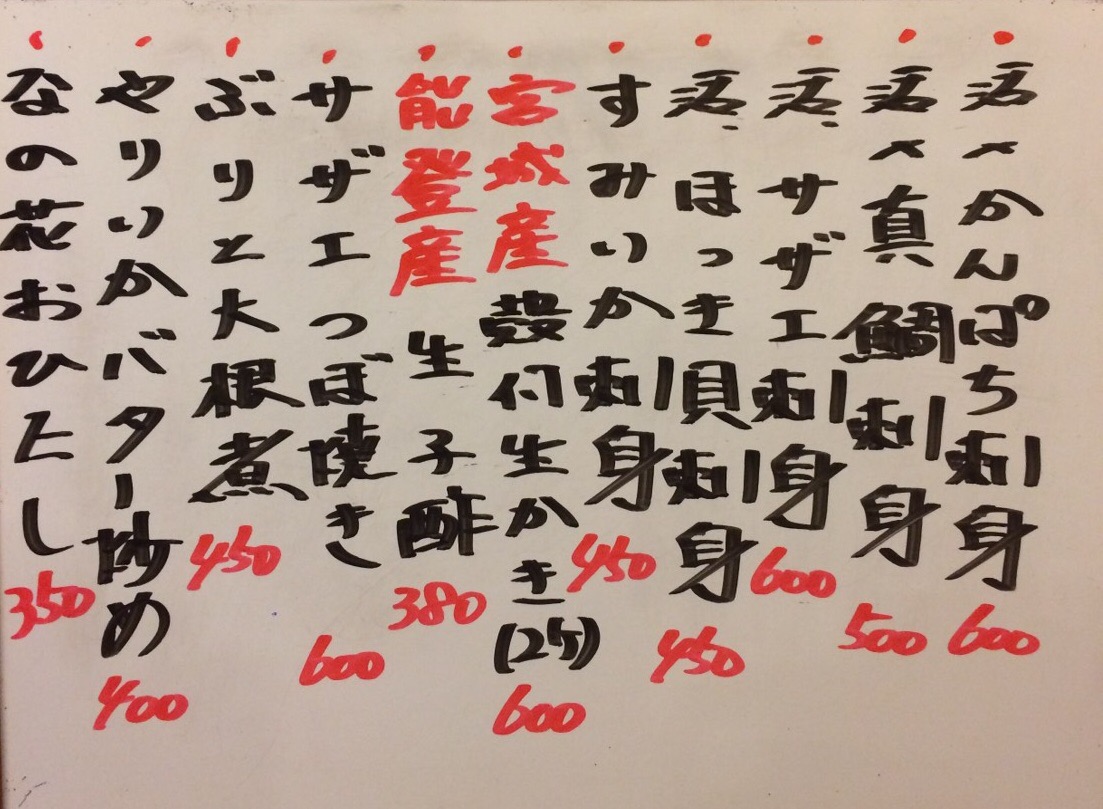 ・活〆かんぱち刺身 600
・活〆真鯛刺身 500
・活サザエ刺身 600
・活ほっき貝刺身 450
・すみいか刺身 450
・宮城産殻付生かき(2ケ) 600
・能登産生子酢 380
・サザエつぼ焼き 600
・ぶりと大根煮 450
・やりいかバター炒め 400
・なの花おひたし 350